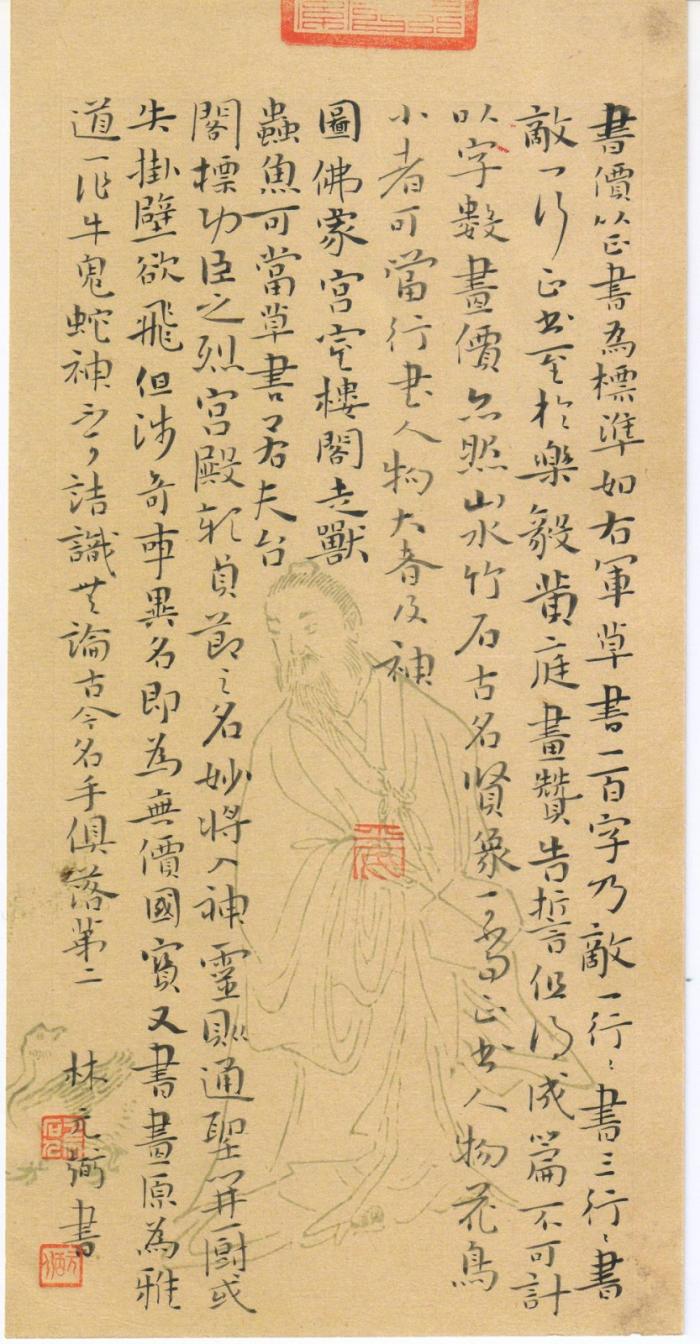 書價以正書為標準如右軍草書一百字乃敵一行〻書三行〻書
敵一行正书至於樂毅黄庭畫贊告誓但得成篇不可計
以字數畫價亦然山水竹石古名賢象可當正书人物花鳥
小者可當行书人物大者及神
圖佛象宫室樓閣走獸
蟲魚可當草書若夫台
閣標功臣之烈宫殿彰貞節之名妙將入神靈則通聖開厨或
失掛壁欲飛但涉奇事異名即為無價國寳又書畫原為雅
道一作牛鬼蛇神不可詰識無論古今名手俱落第二
林元弼書